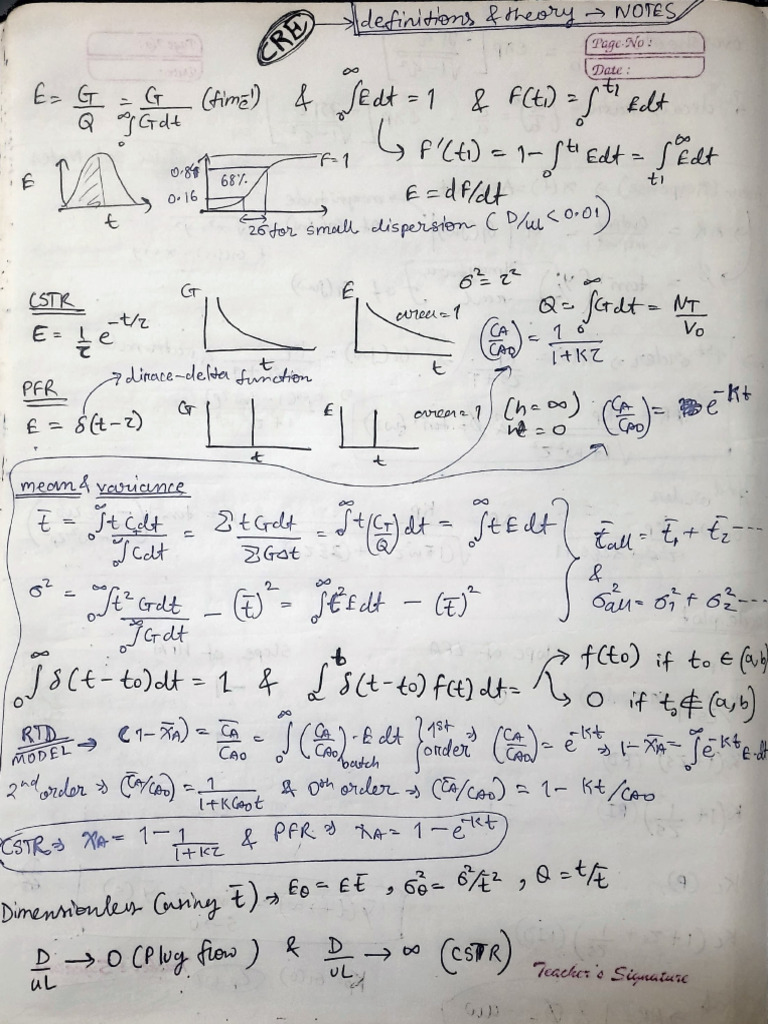 CRE → definitions & theory → NOTES
Page No :
Date :
E = G/Q = G/₀∫^∞ Gdt (time⁻¹) & ₀∫^∞ Edt = 1 & F(t₁) = ₀∫^t₁ Edt
↳ F'(t₁) = 1 - ₀∫^t₁ Edt = t₁∫^∞ Edt
E = dF/dt
E
t
0.84
0.16
68%
F=1
2σ for small dispersion (D/uL < 0.01)
CSTR
E = 1/τ e^-t/τ
G
t
E
area = 1
t
σ² = τ²
Q = ₀∫^∞ Gdt = NT/V₀
(CA/CA0) = 1/1+Kτ
PFR
→ dirace-delta function
E = δ(t-τ)
G
t
E
t
area = 1
(n = ∞)
= 0
(CA/CA0) = e^-Kt
mean & variance
t̄ = ₀∫^∞ t Cdt / ₀∫^∞ Cdt = Σ t G dt / Σ G Δt = ₀∫^∞ t (CT/Q) dt = ₀∫^∞ t E dt
t̄all = t̄₁ + t̄₂ ----
&
σ² = ₀∫^∞ t² Gdt / ₀∫^∞ Gdt - (t̄)² = ₀∫^∞ t² Edt - (t̄)²
σ²all = σ₁² + σ₂² ----
₀∫^∞ δ(t-t₀)dt = 1 & a∫^b δ(t-t₀) f(t) dt = → f(t₀) if t₀ ∈ (a,b)
↘ 0 if t₀ ∉ (a,b)
RTD MODEL → (1-X̄A) = C̄A/CA0 = ₀∫^∞ (CA/CA0)batch · E dt } 1st order ⇒ (CA/CA0) = e^-Kt ⇒ 1-X̄A = ₀∫^∞ e^-Kt E·dt
2nd order ⇒ (C̄A/CA0) = 1/1+KCA0t & 0th order → (C̄A/CA0) = 1 - Kt/CA0
CSTR ⇒ XA = 1 - 1/1+Kτ & PFR ⇒ XA = 1 - e^-Kt
Dimensionless (using t̄) → Eθ = E t̄ , σθ² = σ²/t̄² , θ = t/t̄
D/uL → 0 (Plug flow) & D/uL → ∞ (CSTR)
Teacher's Signature